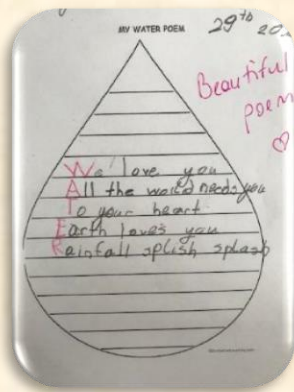 MY WATER POEM
29th
Beautiful
poem
We love you
All the world needs you
To your heart
Earth loves you
Rainfall splish splash